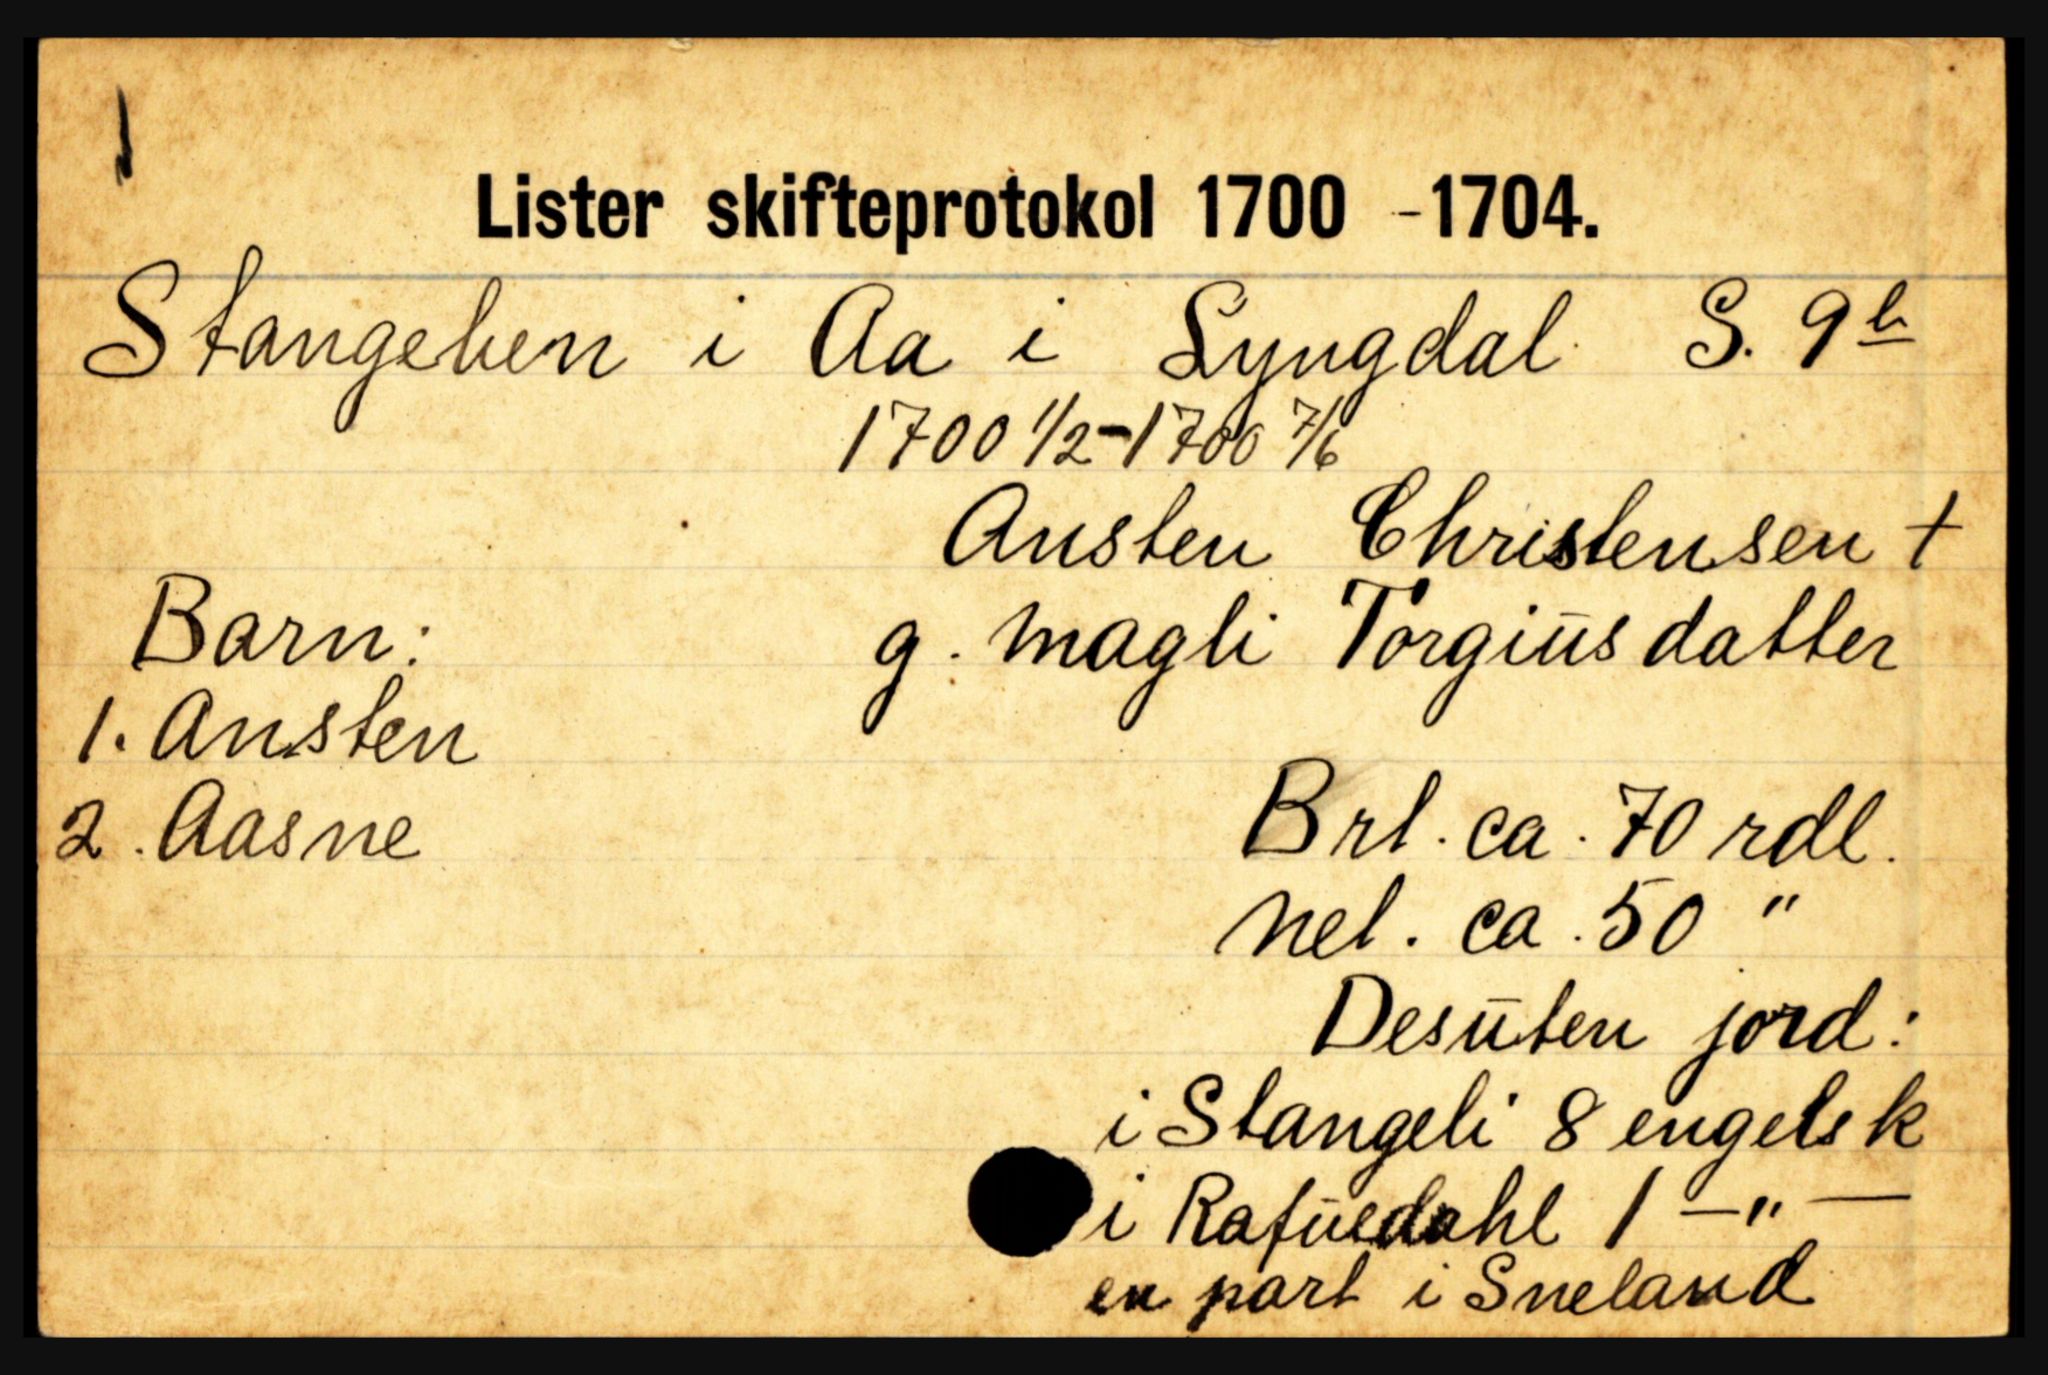 Lister skifteprotokol 1700 -1704.
Stangelien i Aa i Lyngdal S. 9b
1700 1/2-1700 7/6
Ansten Christensen †
Barn: g. Magli Torgiūsdatter
1. Ansten
2. Aasne Brl. ca. 70 rdl.
Nel. ca. 50 "
Desūten jord:
i Stangeli 8 engelsk
i Rafūedahl 1 —"—
en part i Sneland